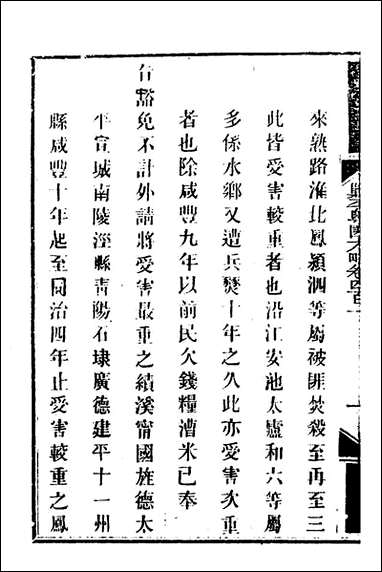 來熟路淮北鳳潁泗等屬被匪焚殺至再至三
此皆受害較重者也沿江安池太廬和六等屬
多係水鄉又遭兵燹十年之久此亦受害次重
者也除咸豐九年以前民欠錢糧漕米已奉
行豁免不計外請將受害最重之績溪甯國旌德太
平宣城南陵涇縣靑陽石埭廣德建平十一州
縣咸豐十年起至同治四年止受害較重之鳳